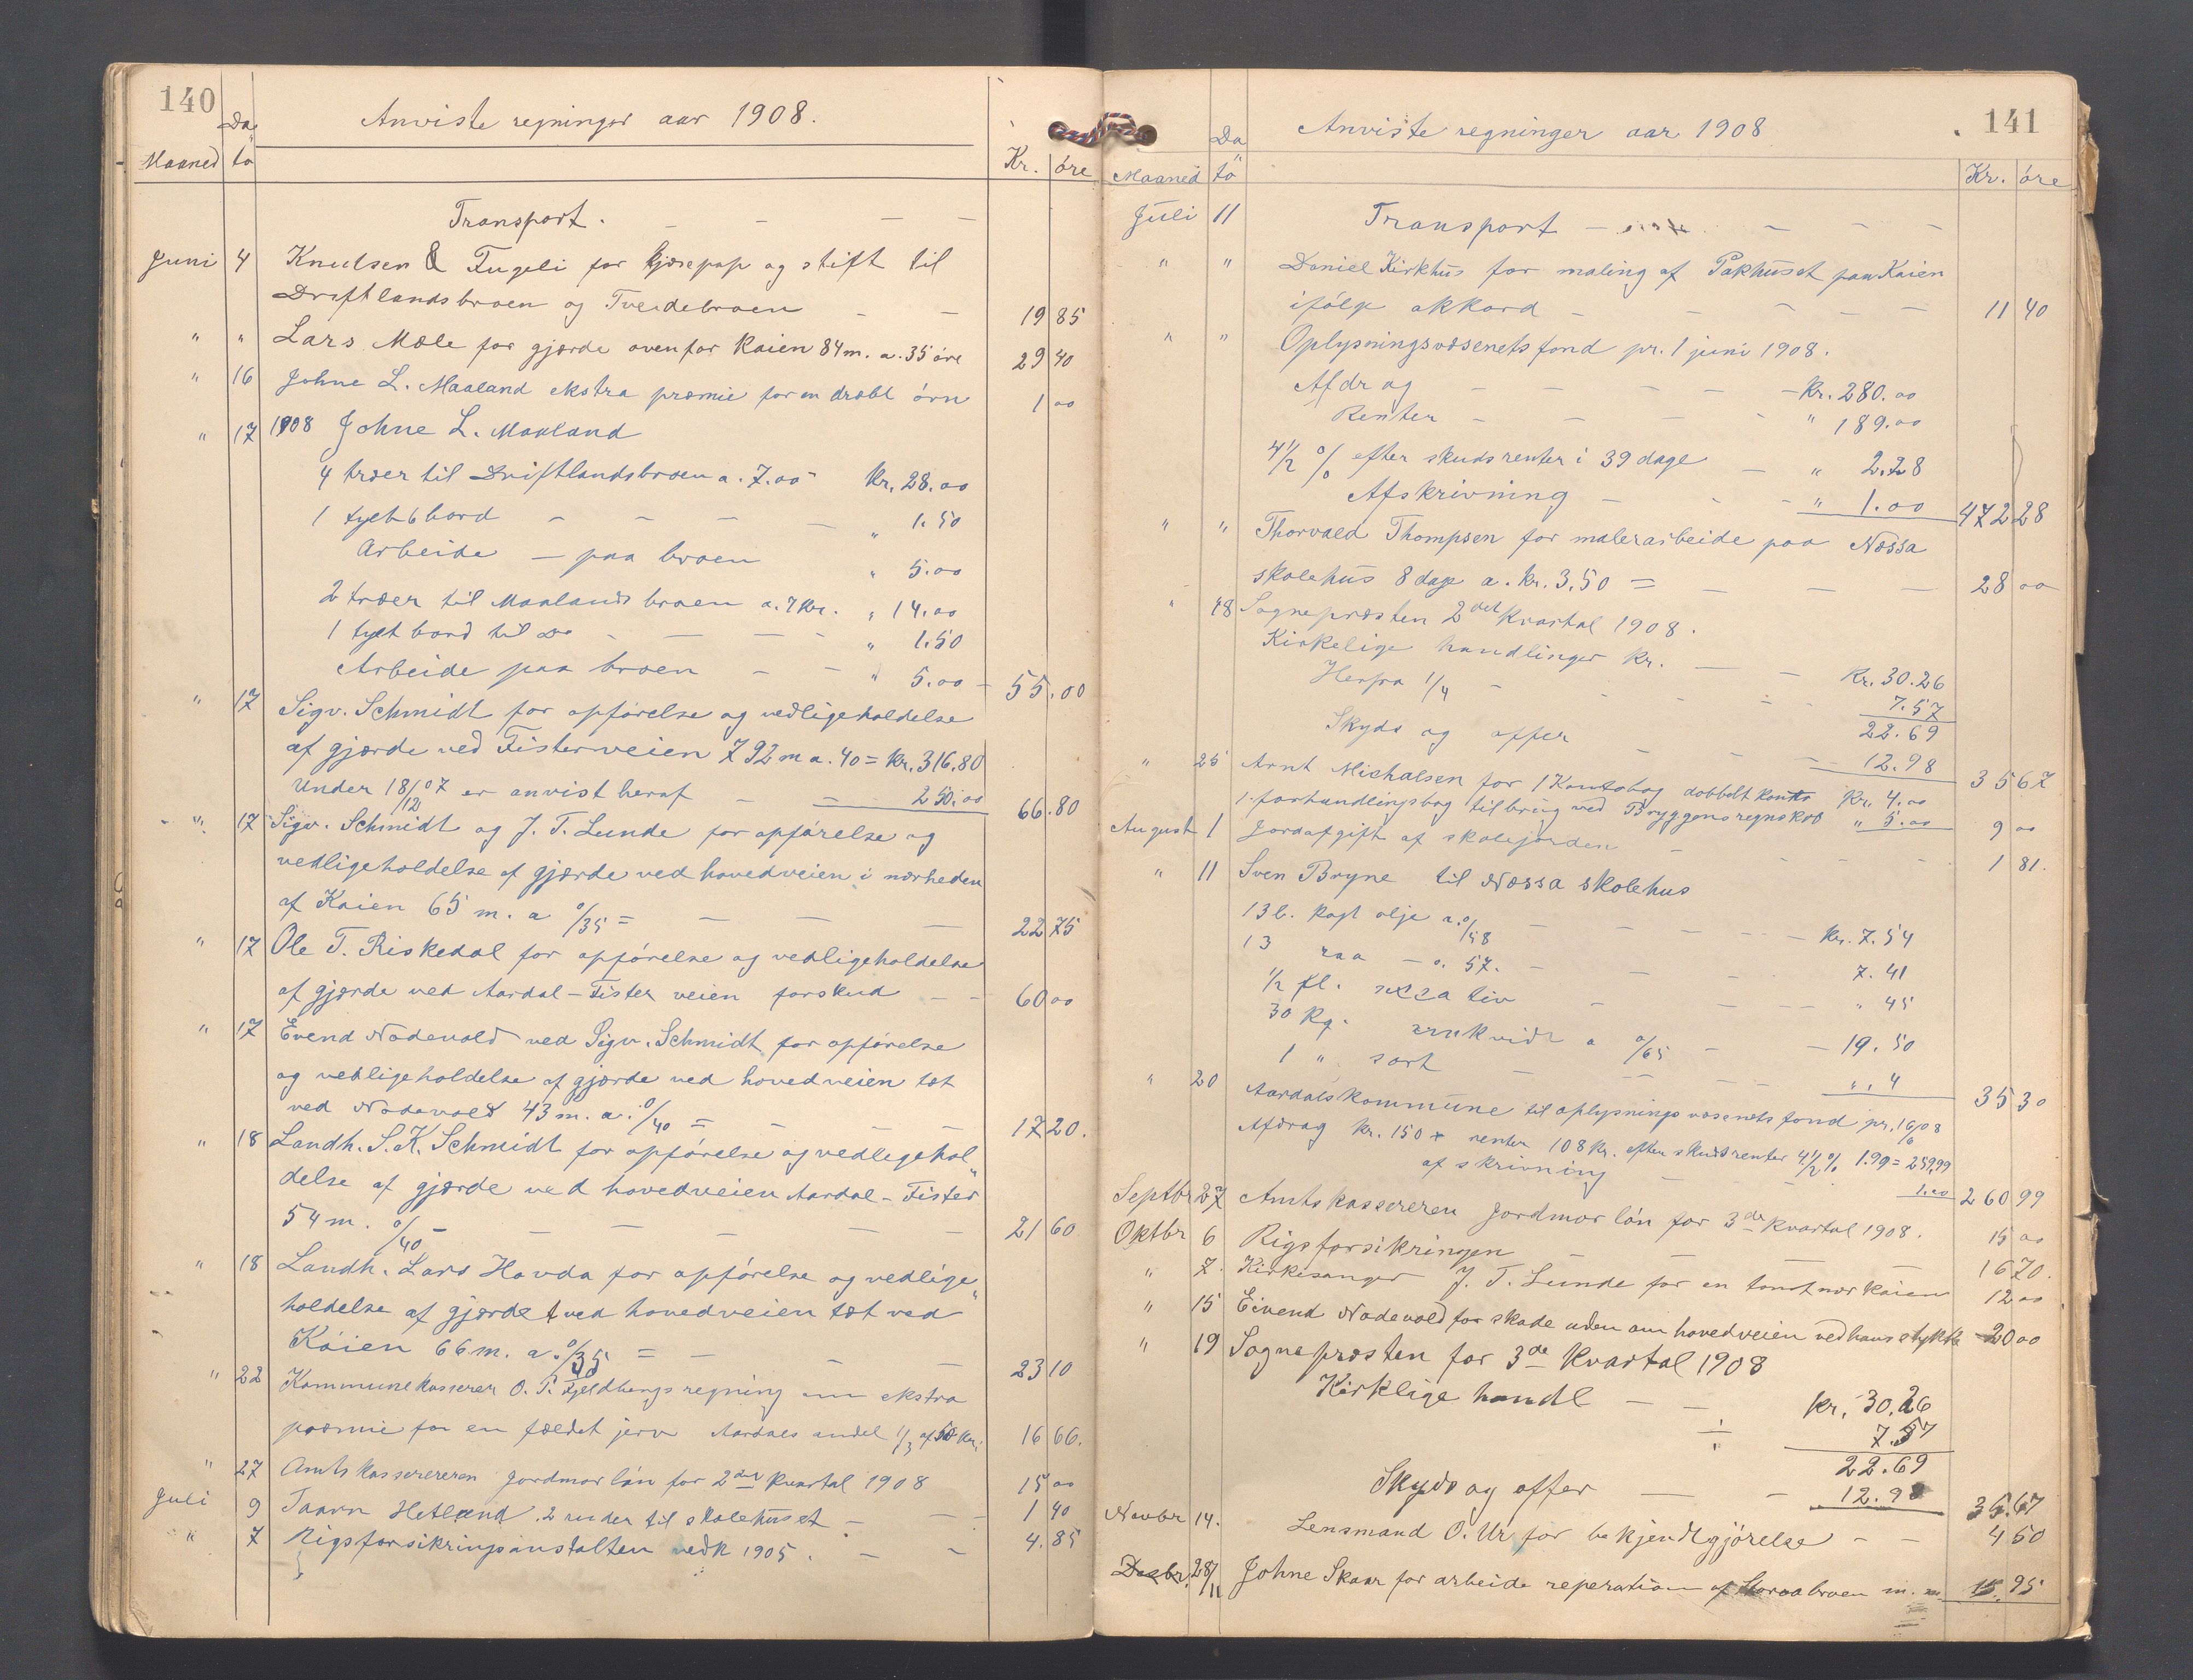 140
Anviste regninger aar 1908.
Maaned Da to Kr. öre
Transport. — — — —
Juni 4 Knudsen & Fugeli for tjærepap og stift til
Driftlandsbroen og Tveidebroen — — 19 85
" " Lars Mæle for gjærde ovenfor Kaien 84 m. a. 35 öre 29 40
" 16 Johne L. Maaland ekstra præmie for en dræbt örn 1 00
" 17 1908 Johne L. Maaland
4 træer til Driftlandsbroen a. 7.00 Kr. 28.00
1 tylt bord — — — — " 1.50
Arbeide — paa broen " 5.00
2 træer til Maalands broen a. 7 Kr. " 14.00
1 tylt bord til Do - — — - " 1.50
Arbeide paa broen — — " 5.00 — 55.00
" 17 Sigv. Schmidt for opförelse og vedligeholdelse
af gjærde ved Fisterveien 792 m a. 40 = Kr. 316.80
Under 18/12 07 er anvist heraf — — 250.00 66.80
" 17 Sigv. Schmidt og J. T. Lunde for opförelse og
vedligeholdelse af gjærde ved hovedveien i nærheden
af Kaien 65 m. a 0/35 = — — — 22 75
" 17 Ole T. Riskedal for opförelse og vedligeholdelse
af gjærde ved Aardal - Fister veien forskud — — 60 00
" 17 Evend Nadevold ved Sigv. Schmidt for opförelse
og vedligeholdelse af gjærde ved hovedveien tæt
ved Nadevold 43 m. a. 0/40 = — — — 17 20.
" 18 Landh. S. K. Schmidt for opförelse og vedligehol"
delse af gjærde ved hovedveien Aardal - Fister
54 m. 0/40 — — — — — 21 60
" 18 Landh. Lars Hovda for opförelse og vedlige"
holdelse af gjærdet ved hovedveien tæt ved
Kaien 66 m. a. 0/35 = — — — 23 10
" 22 Kommunekasserer O. P. Fjeldbergs regning om ekstra
præmie for en fældet jerv Aardals andel 1/3 af 50 Kr. 16 66.
" 27 Amtskassereren Jordmorlön for 2det Kvartal 1908 15 00
Juli 9 Taarn Hetland. 2 ruder til skolehuset — — — 1 40
" 7 Rigsforsikringsanstalten vedk 1905. — — 4.85
141
Anviste regninger aar 1908
Maaned Da to Kr. öre
Juli 11 Transport — — — —
" " Daniel Kirkhus for maling af Pakhuset paa Kaien
ifölge akkord — — — — — 11 40
" " Oplysningsvæsenets fond pr. 1 juni 1908.
Afdrag — — — — — Kr. 280.00
Renter — — — — " 189.00
4 1/2 % efter skudsrenter i 39 dage — " 2.28
Afskrivning — - - " 1.00 472 28
" " Thorvald Thompsen for malerarbeide paa Næssa
skolehus 8 dage a. Kr. 3,50 = — — — 28 00
" 18 Sognepræsten 2det Kvartal 1908.
Kirkelige handlinger Kr. — — Kr. 30.26
Herfra 1/4 - - - - 7.57
22.69
Skyds og offer — — 12.98 35 67
" 25 Arnt Michalsen for 1 Kontobog dobbelt konto Kr. 4.00
1. forhandlingsbog til brug ved Bryggens regnskab " 5.00 9 00
August 1 Jordafgift af skolejorden — - - - 1 81.
" 11 Sven Bryne til Næssa skolehus
13 l. kogt olje a. 0/58 — — — — Kr. 7.54
13 raa — a. 57. — — - 7.41
1/2 fl. sekativ — — — " 45
30 Kg. zinkvidt a 0/65 — — 19.50
1 " sort — — — — ". 4 35 30
" 20 Aardals Kommune til oplysningsvæsenets fond pr. 16/6 08
Afdrag Kr. 150 + renter 108 Kr. efter skudsrenter 4 1/2 % 1.99 = 259,99
afskrivning — — — 1.00 260 99
Septbr 27 Amtskassereren Jordmorlön for 3de kvartal 1908. 15 00
Oktbr 6 Rigsforsikringen — — — 16 70.
" 7. Kirkesanger J. T. Lunde for en tomt nær kaien 12 00
" 15 Eivend Nadevold for skade uden om hovedveien ved hans stykke 20 00
" 19 Sognepræsten for 3de Kvartal 1908
Kirklige handl — — Kr. 30.26
÷ 7.57
22.69
Skyds og offer — — 12.98 35.67
Novbr 14. Lensmand O. Ur for bekjendtgjörelse — — 4 50
Decbr. 28/11 Johne Skaar for arbeide reperation af Storaabroen m. m. 15. 95